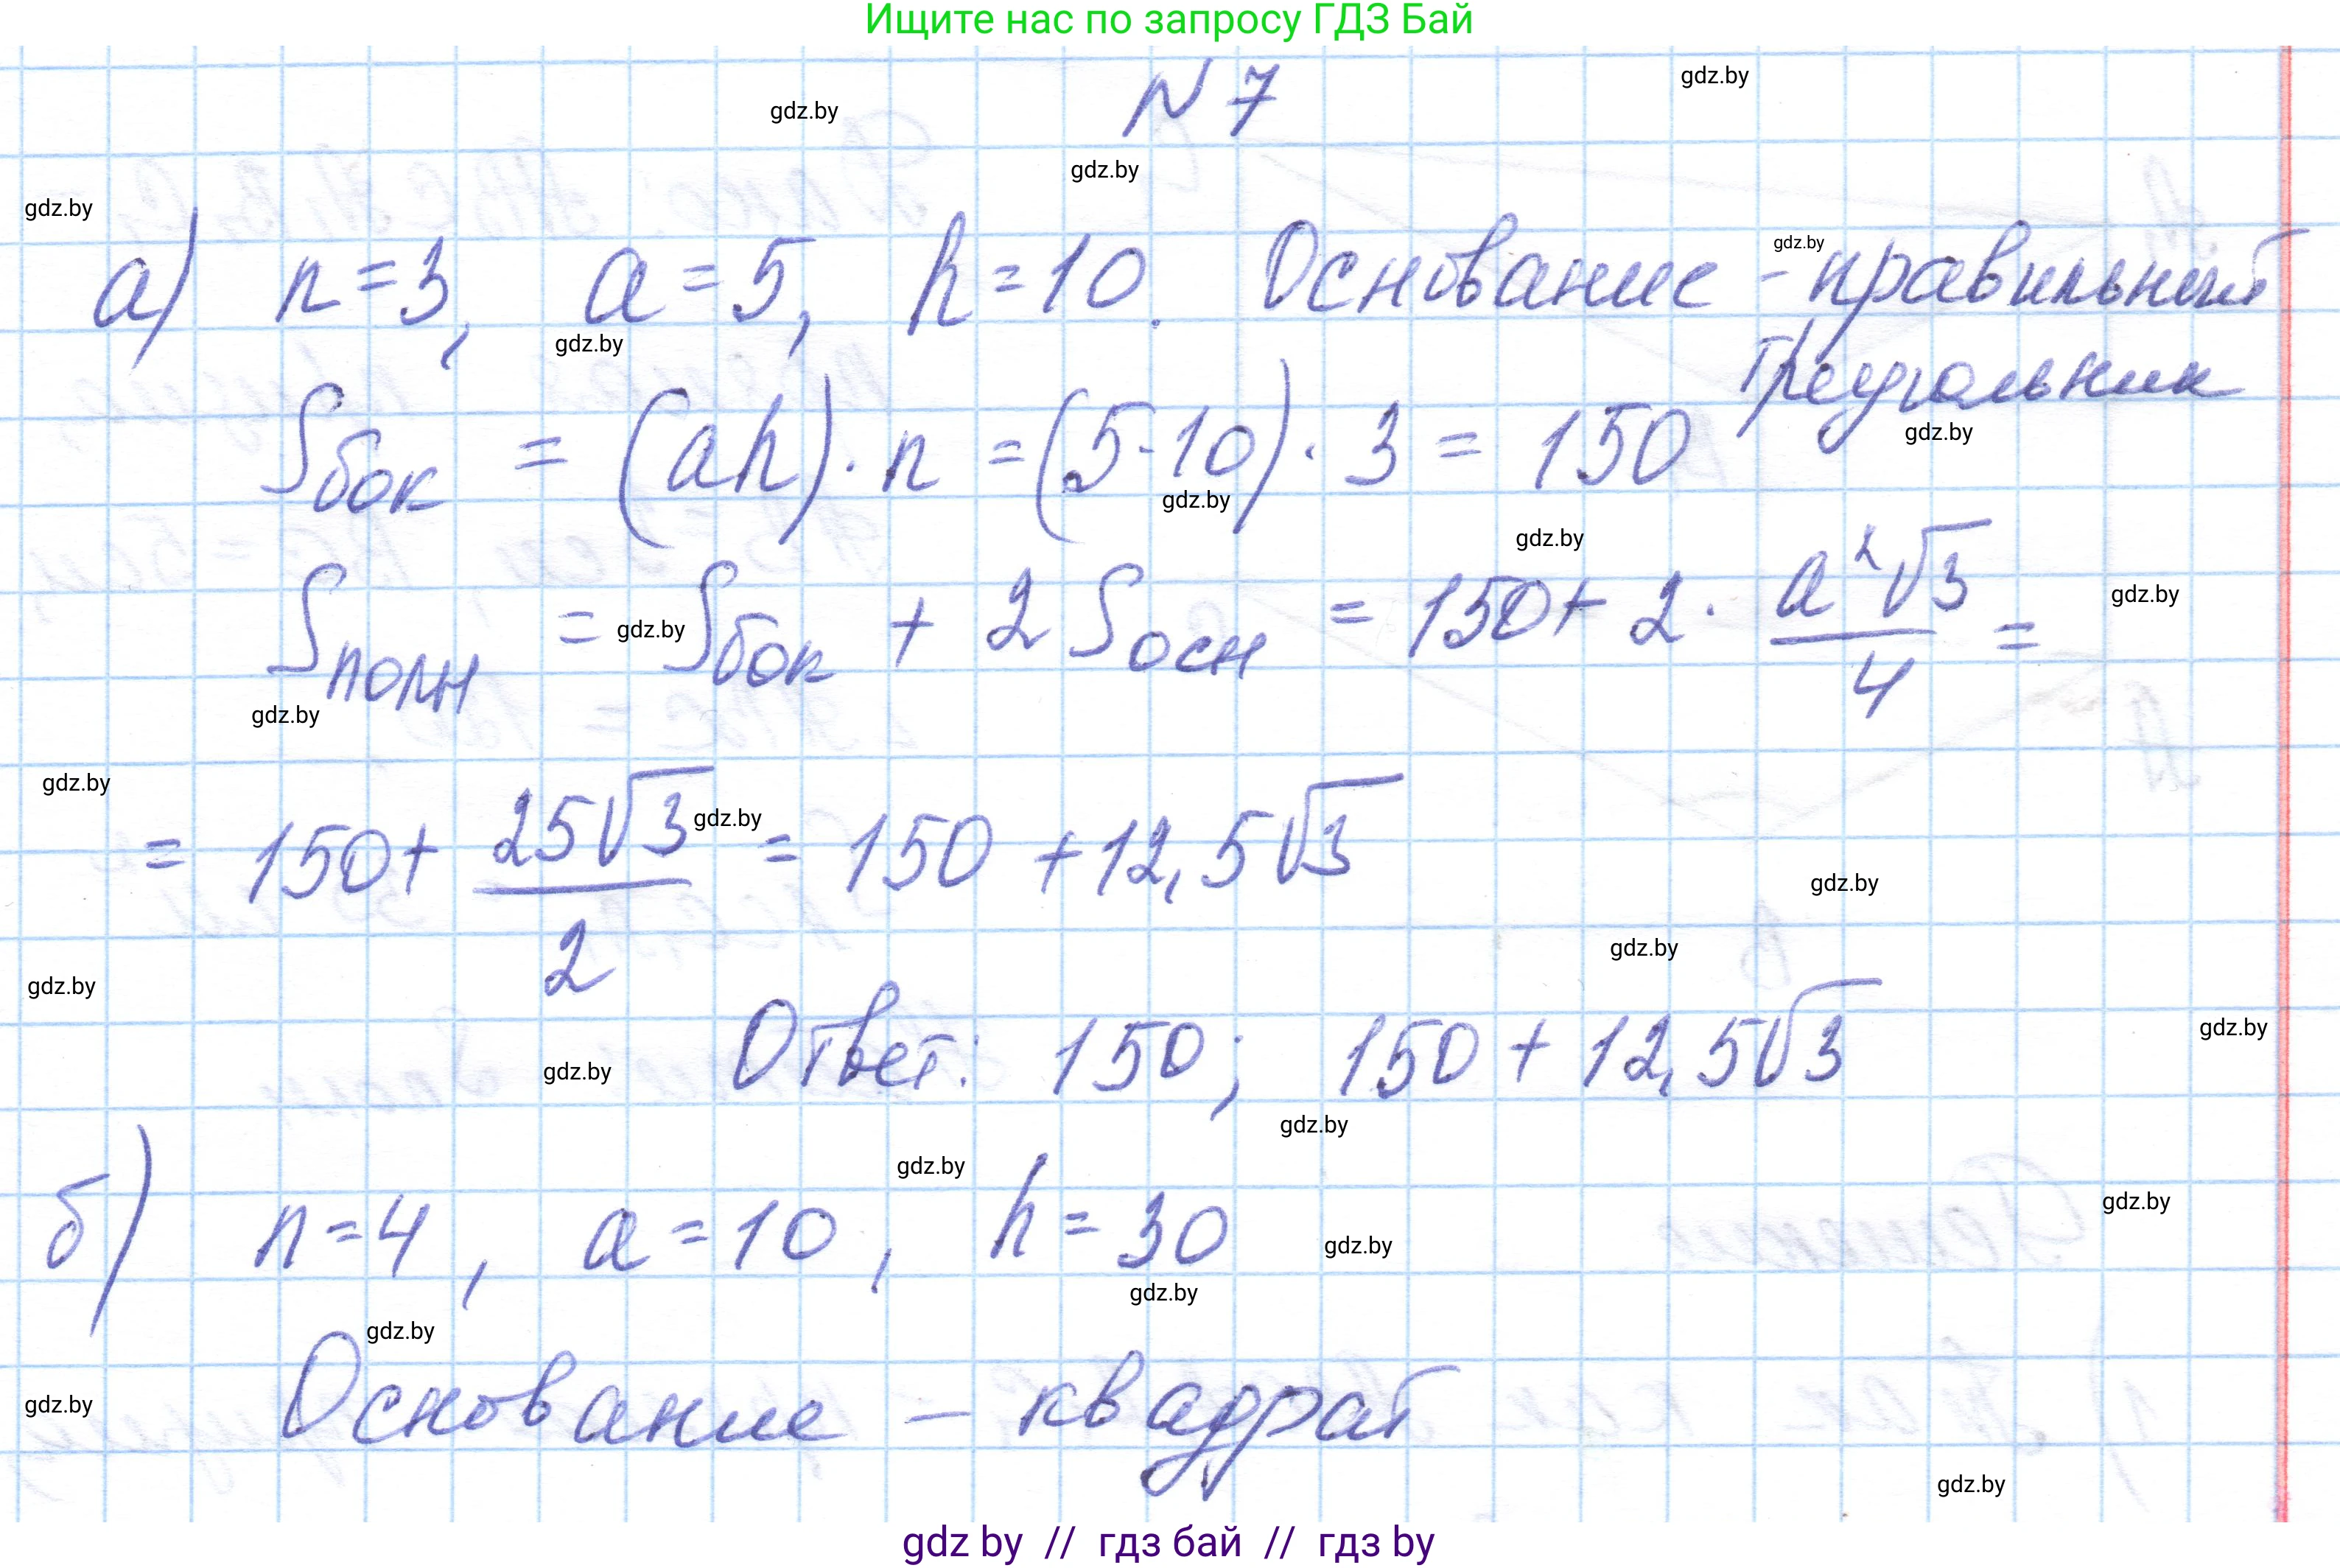 Ищите нас по запросу ГДЗ Бай
N 7
gdz.by gdz.by
gdz.by
gdz.by
а) n=3, a=5, h=10. Основание - правильный
gdz.by
треугольник
gdz.by
Sбок = (ah)·n = (5·10)·3 = 150
gdz.by
gdz.by
gdz.by
Sполн = Sбок + 2Sосн = 150 + 2·a²√3/4 =
gdz.by gdz.by
gdz.by
gdz.by
= 150 + 25√3/2 = 150 + 12,5√3
gdz.by
gdz.by
gdz.by
gdz.by
Ответ: 150; 150 + 12,5√3
gdz.by
gdz.by
gdz.by
gdz.by
б) n=4, a=10, h=30
gdz.by
gdz.by
gdz.by
gdz.by
Основание – квадрат
gdz.by
gdz.by
gdz by // гдз бай // гдз by